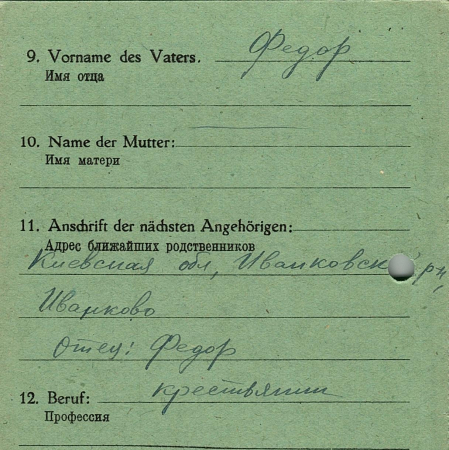 9. Vorname des Vaters. Федор
Имя отца
10. Name der Mutter:
Имя матери
11. Anschrift der nächsten Angehörigen:
Адрес ближайших родственников
Киевская обл, Иванковск рн,
Иванково
Отец: Федор
12. Beruf: крестьянин
Профессия